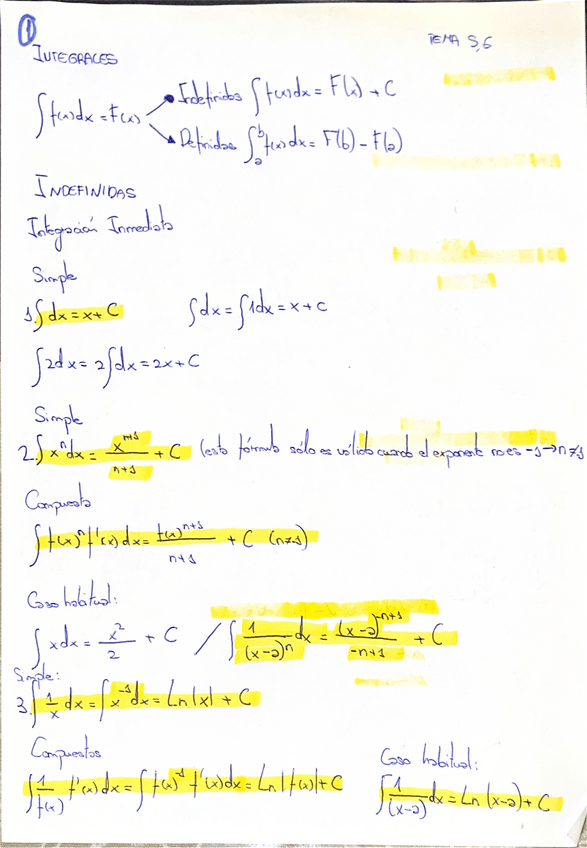 1
TEMA 5,6
INTEGRALES
∫f(x)dx = F(x)
Indefinidas ∫f(x)dx = F(x) + C
Definidas ∫ₐᵇ f(x)dx = F(b) - F(a)
INDEFINIDAS
Integración Inmediata
Simple
1. ∫dx = x + C   ∫dx = ∫1dx = x + C
∫2dx = 2∫dx = 2x + C
Simple
2. ∫xⁿdx = xⁿ⁺¹/n+1 + C (esta fórmula sólo es válida cuando el exponente no es -1 → n≠-1
Compuesta
∫f(x)ⁿ f'(x)dx = f(x)ⁿ⁺¹/n+1 + C (n≠-1)
Caso habitual:
∫xdx = x²/2 + C / ∫1/(x-a)ⁿ dx = (x-a)⁻ⁿ⁺¹/-n+1 + C
Simple:
3. ∫1/x dx = ∫x⁻¹dx = Ln|x| + C
Compuestas
∫1/f(x) f'(x)dx = ∫f(x)⁻¹ f'(x)dx = Ln|f(x)| + C
Caso habitual:
∫1/(x-a) dx = Ln (x-a) + C